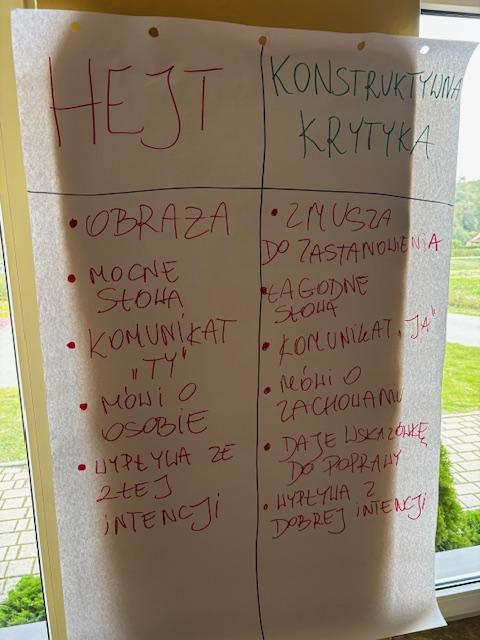 HEJT
• OBRAZA
• MOCNE
SŁOWA
• KOMUNIKAT
„TY"
• MÓWI O
OSOBIE
• WYPŁYWA ZE
ZŁEJ
INTENCJI
KONSTRUKTYWNA
KRYTYKA
• ZMUSZA
DO ZASTANOWIENIA
• ŁAGODNE
SŁOWA
• KOMUNIKAT „JA"
• MÓWI O
ZACHOWANIU
• DAJE WSKAZÓWKĘ
DO POPRAWY
• WYPŁYWA Z
DOBREJ INTENCJI